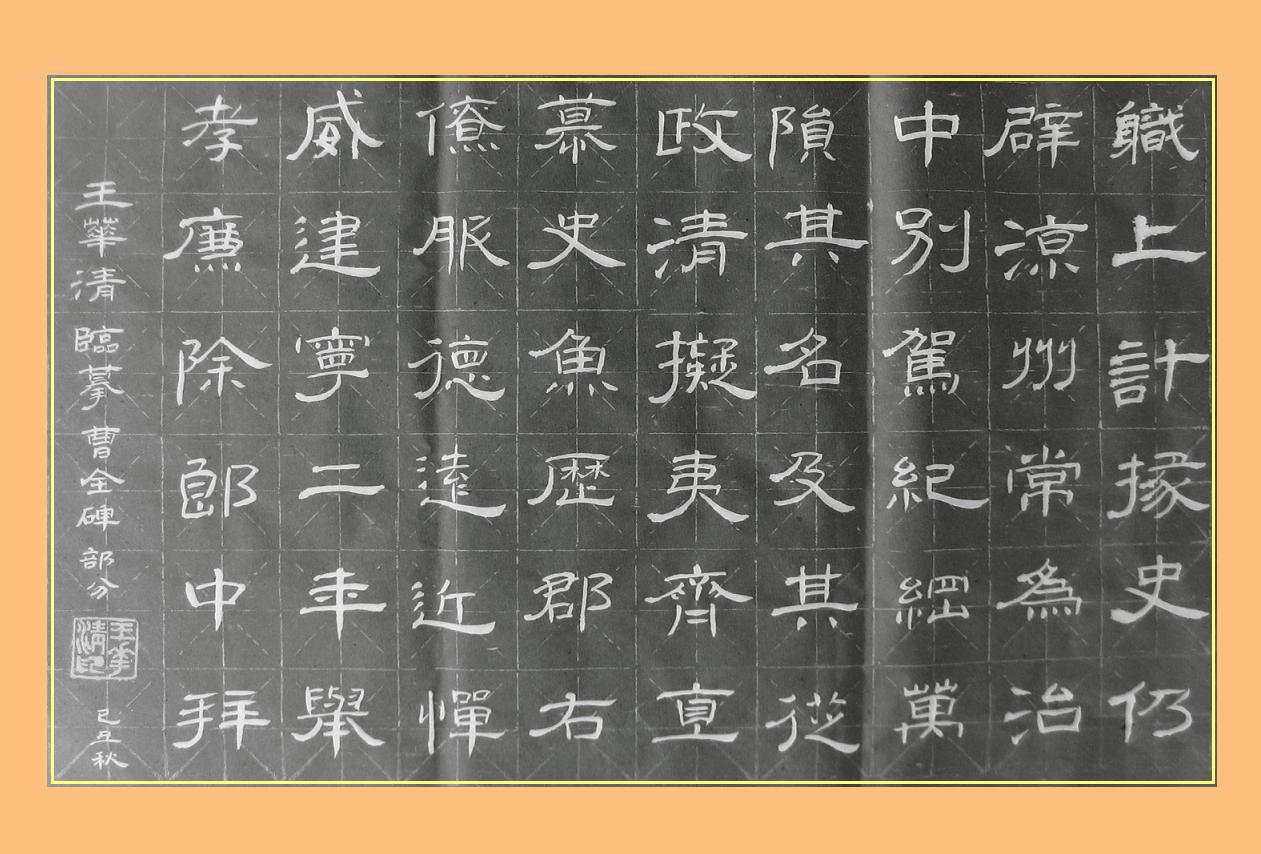 職上計掾史仍
辟涼州常為治
中別駕紀綱萬
隕其名及其從
政清擬夷齊直
慕史魚歷郡右
僚服德遠近憚
威建寧二年舉
孝廉除郎中拜
王華清臨摹曹全碑部分
王华清印
己丑秋